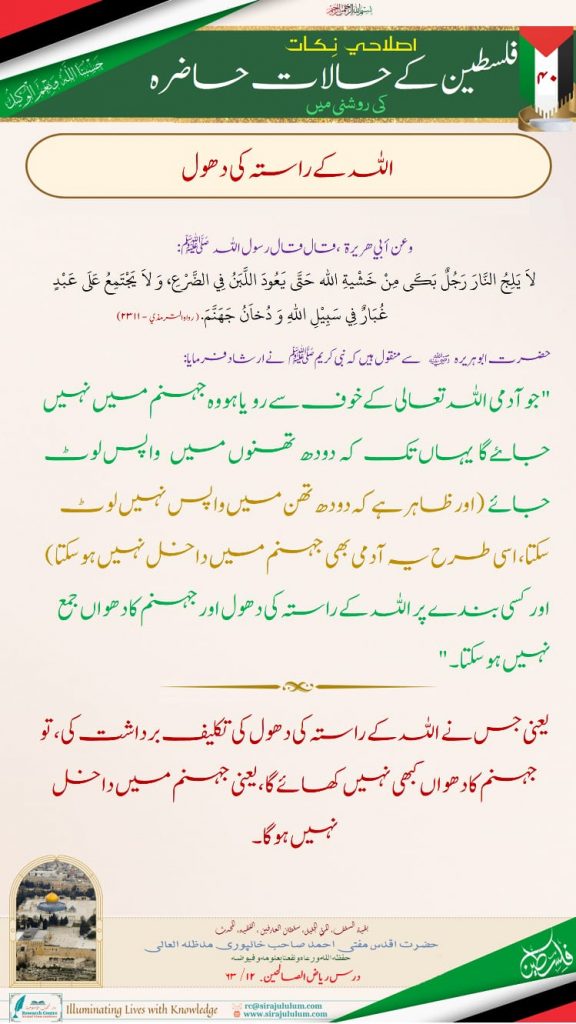 بسم الله الرحمن الرحيم
حَسْبُنَا اللّٰهُ وَنِعْمَ الْوَكِيْلُ
اصلاحي نِکات
فلسطین کے حالات حاضرہ
کی روشنی میں
۴۰
اللہ کے راستہ کی دھول
وعن أبي هريرة ، قال قال رسول الله ﷺ:
لاَ يَلِجُ النَّارَ رَجُلٌ بَكَى مِنْ خَشْيةِ الله حَتَّى يَعُودَ اللَّبَنُ فِي الضَّرْعِ، وَ لاَ يَجْتَمِعُ عَلَى عَبْدٍ
غُبَارٌ فِي سَبِيْلِ اللهِ وَ دُخَانُ جَهَنَّمَ. (رواه الترمذي - ۲۳۱۱)
حضرت ابو ہریرہ رضی اللہ عنہ سے منقول ہیں کہ نبی کریم ﷺ نے ارشاد فرمایا:
"جو آدمی اللہ تعالی کے خوف سے رویا ہو وہ جہنم میں نہیں
جائے گا یہاں تک کہ دودھ تھنوں میں واپس لوٹ
جائے (اور ظاہر ہے کہ دودھ تھن میں واپس نہیں لوٹ
سکتا، اسی طرح یہ آدمی بھی جہنم میں داخل نہیں ہو سکتا)
اور کسی بندے پر اللہ کے راستہ کی دھول اور جہنم کا دھواں جمع
نہیں ہو سکتا۔"
یعنی جس نے اللہ کے راستہ کی دھول کی تکلیف برداشت کی، تو
جہنم کا دھواں کبھی نہیں کھائے گا، یعنی جہنم میں داخل
نہیں ہو گا۔
حضرت اقدس مفتی احمد صاحب خانپوری مدظلہ العالی
حفظه الله ورعاه ونفعنا بعلومه وفيوضه
درس ریاض الصالحین. ۱۲/ ۶۳
فلسطین
Research Centre
Illuminating Lives with Knowledge
rc@sirajululum.com
www.sirajululum.com